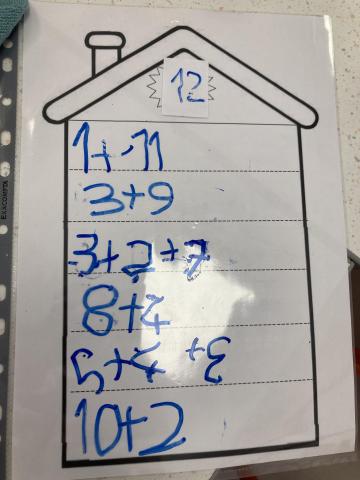 12
1+11
3+9
3+2+7
8+4
5+4+3
10+2
EXACOMPTA